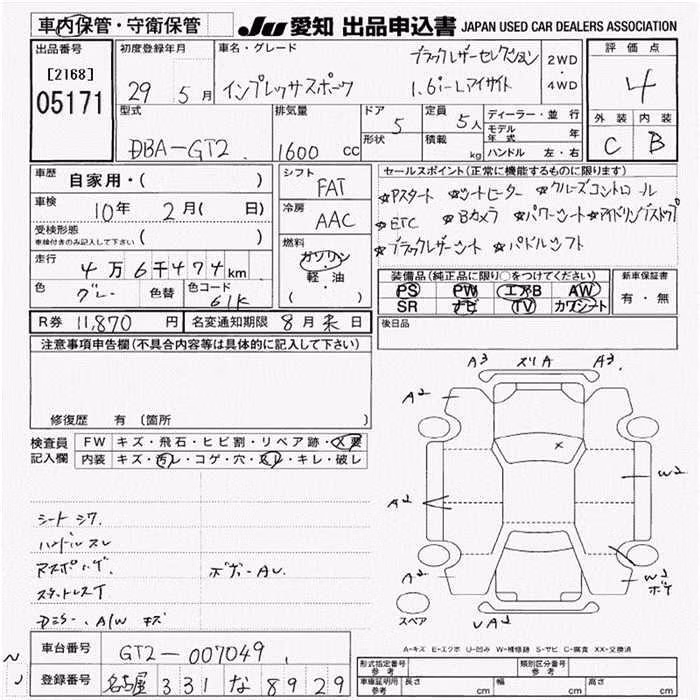 車内保管・守衛保管
JU 愛知 出品申込書 JAPAN USED CAR DEALERS ASSOCIATION
出品番号
[2168]
05171
初度登録年月
29 5月
車名・グレード
ブラックレザーセレクション
インプレッサスポーツ 1.6i-Lアイサイト
2WD
・
4WD
評価点
4
外装 内装
C B
型式
DBA-GT2
排気量
1600 cc
ドア 5
形状
定員 5人
積載 kg
ディーラー・並行
モデル年式 年
ハンドル 左・右
車歴 自家用・( )
車検 10年 2月( 日)
受検形態
車検付きのみ記入して下さい ( )
走行 4万6千474km
色 グレー 色替 色コード 61K
シフト
FAT
冷房
AAC
燃料
ガソリン
軽・油
( )
セールスポイント(正常に機能するものに限ります)
☆Pスタート ☆シートヒーター ☆クルーズコントロール
☆ETC ☆Bカメラ ☆パワーシート ☆アイドリングストップ
☆ブラックレザーシート ☆パドルシフト
装備品(純正品に限り○をつけてください)
PS PW エアB AW
SR ナビ TV カワシート
新車保証書
有・無
R券 11,870 円 名変通知期限 8月末日
後日品
注意事項申告欄(不具合内容等は具体的に記入して下さい)
修復歴 有(箇所 )
検査員 FW キズ・飛石・ヒビ割・リペア跡・X要
記入欄 内装 キズ・汚レ・コゲ・穴・スレ・キレ・破レ
シートシワ
ハンドルスレ
ボデーAU
A3 スリA A3
A2
A2
W2
A2
W2
ボデ
UA2
スペア
A-キズ E-エクボ U-凹み W-補修跡 S-サビ C-腐食 XX-交換済
車台番号 GT2-007049
登録番号 名古屋 331 な 8929
形式指定番号
参考
類別区分番号
参考
車庫証明用
参考
長さ cm 幅 cm 高さ cm